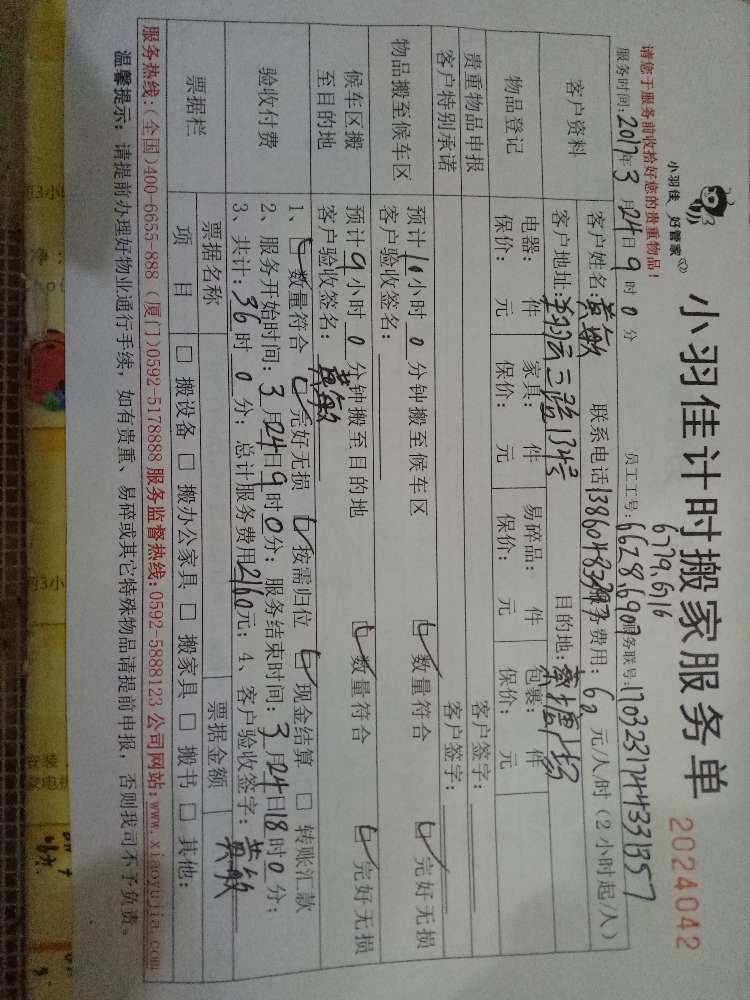 小羽佳 好管家
小羽佳计时搬家服务单 2024042
请您于服务前收拾好您的贵重物品！
6779.6716
服务时间：2017年3月24日9时0分 员工工号：6628.6907 服务联号：
客户资料 客户姓名：黄敏 联系电话 服务费用：60元/人/时（2小时起/人）
客户地址： 目的地：
物品登记 电器： 件 家具： 件 易碎品： 件 包裹： 件
保价： 元 保价： 元 保价： 元 保价： 元
贵重物品申报 客户签字：
客户特别承诺 客户签字：
物品搬至候车区 预计10小时0分钟搬至候车区 数量符合 完好无损
客户验收签名：
候车区搬至目的地 预计9小时0分钟搬至目的地 数量符合 完好无损
客户验收签名：黄敏
验收付费 1、 数量符合 完好无损 按需归位 现金结算 □ 转账汇款
2、服务开始时间：3月24日9时0分；服务结束时间：3月24日18时0分；
3、共计：36时0分；总计服务费用2160元；4、客户验收签字：黄敏
票据栏 票据名称 票据金额
项目 □ 搬设备 □ 搬办公家具 □ 搬家具 □ 搬书 □ 其他：
服务热线：(全国)400-6655-888 (厦门)0592-5178888 服务监督热线：0592-5888123 公司网站：www.xiaoyujia.com
温馨提示：请提前办理好物业通行手续，如有贵重、易碎或其它特殊物品请提前申报，否则我司不予负责。